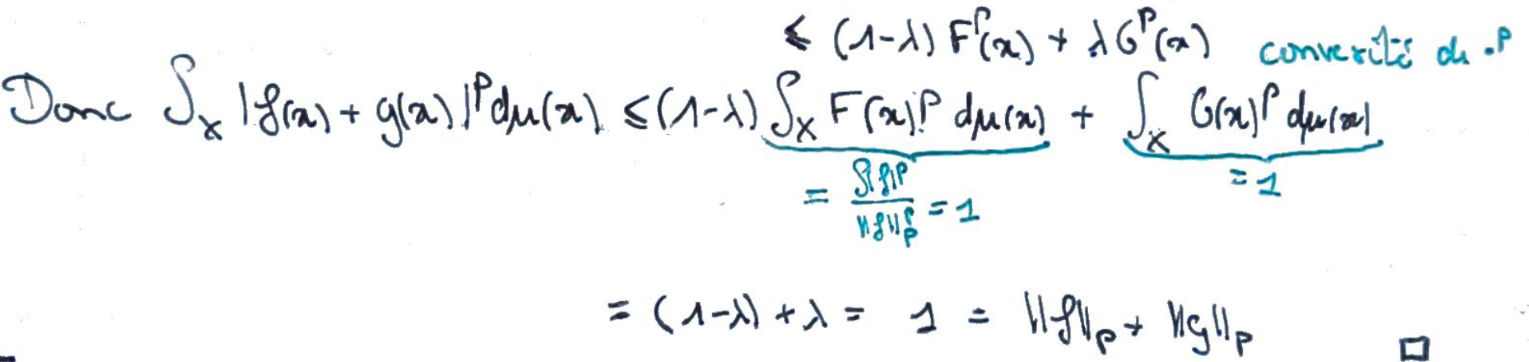 ≤ (1-λ) F^p(x) + λ G^p(x) convexité de .^p
Donc ∫_X |f(x) + g(x)|^p dμ(x) ≤ (1-λ) ∫_X F(x)^p dμ(x) + ∫_X G(x)^p dμ(x)
= ∫|f|^p / ||f||_p^p = 1 = 1
= (1-λ) + λ = 1 = ||f||_p + ||g||_p □